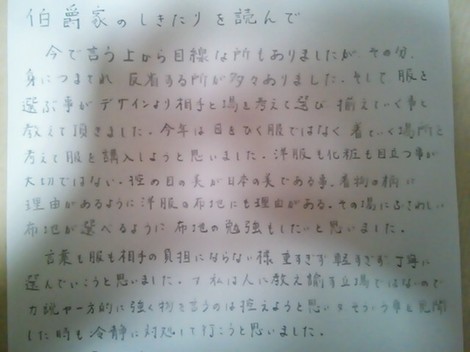 伯爵家のしきたりを読んで
今で言う上から目線な所もありましたが、その分、
身につまされ、反省する所が多々ありました。そして服を
選ぶ事がデザインより相手と場を考えて選び 揃えていく事を
教えて頂きました。今年は目をひく服ではなく 着ていく場所を
考えて服を購入しようと思いました。洋服も化粧も目立つ事が
大切ではない。控の目の美が日本の美である事、着物の柄に
理由があるように 洋服の布地にも理由がある。その場にふさわしい
布地が選べるように 布地の勉強もしたいと思いました。
言葉も服も相手の負担にならない様 重すぎず 軽すぎず 丁寧に
選んでいこうと思いました。私は人に教え諭す立場ではないので
一方的に強く物を言うのは控えようと思い そういう事を見聞
した時も 冷静に対処して行こうと思いました。